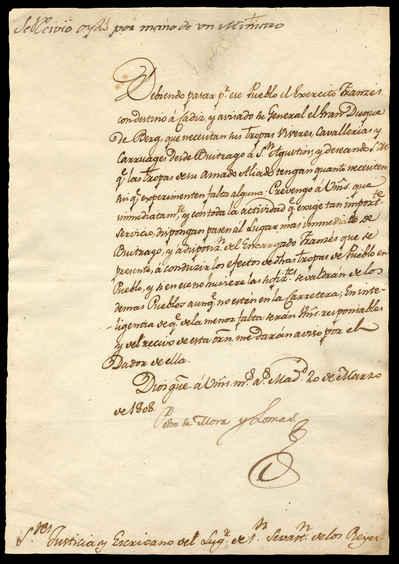 Se recivio oy dia por mano de un Ministro
Debiendo pasar pr ese Pueblo el Exercito Franzes
con destino á Cadiz y avisado su General el Gran Duque
de Berg, que necesitan sus tropas Viveres, Cavallerias y
Carruages desde Buitrago á Sn Agustin, y deseando S. M.
qe las tropas de su Amado Aliado tengan quanto necesiten
sin qe experimenten falta alguna: Prevengo á Vms. que
inmediatamte, y con toda la actividad qe exige tan importte
servicio, dispongan pasen al Lugar mas inmediato de
Buitrago, y a disposn del Encargado Franzés que se
presente, á conducir los efectos de dhas tropas de Pueblo en
Pueblo, y si en ese no hubiere las se valdrán de los
demas Pueblos aunqe no estén en la Carretera; En inte-
ligencia de qe de la menor falta serán Vms. responsables
y del recivo de esta orn. me darán aviso por el
Dador de ella.
Dios gue á Vms. ms. as. Madd 20 de Marzo
de 1808.
de Mora y Lomas
Sres Justicia y Escrivano del Lugr de Sn Sevastn de los Reyes